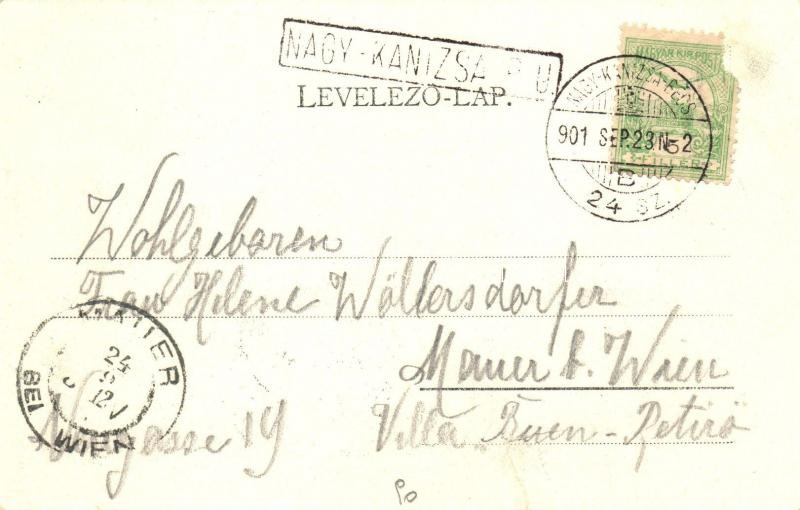 NAGY-KANIZSA P. U.
LEVELEZŐ-LAP.
MAGYAR KIR. POSTA
5 FILLER
NAGY-KANIZSA-PÉCS
901 SEP.23 N-2
B
24 SZ.
Wohlgeboren
Frau Helene Wöllersdorfer
Mauer b. Wien
gasse 19 Villa "Buen-Retiro"
MAUER
24
9
12V
BEI WIEN